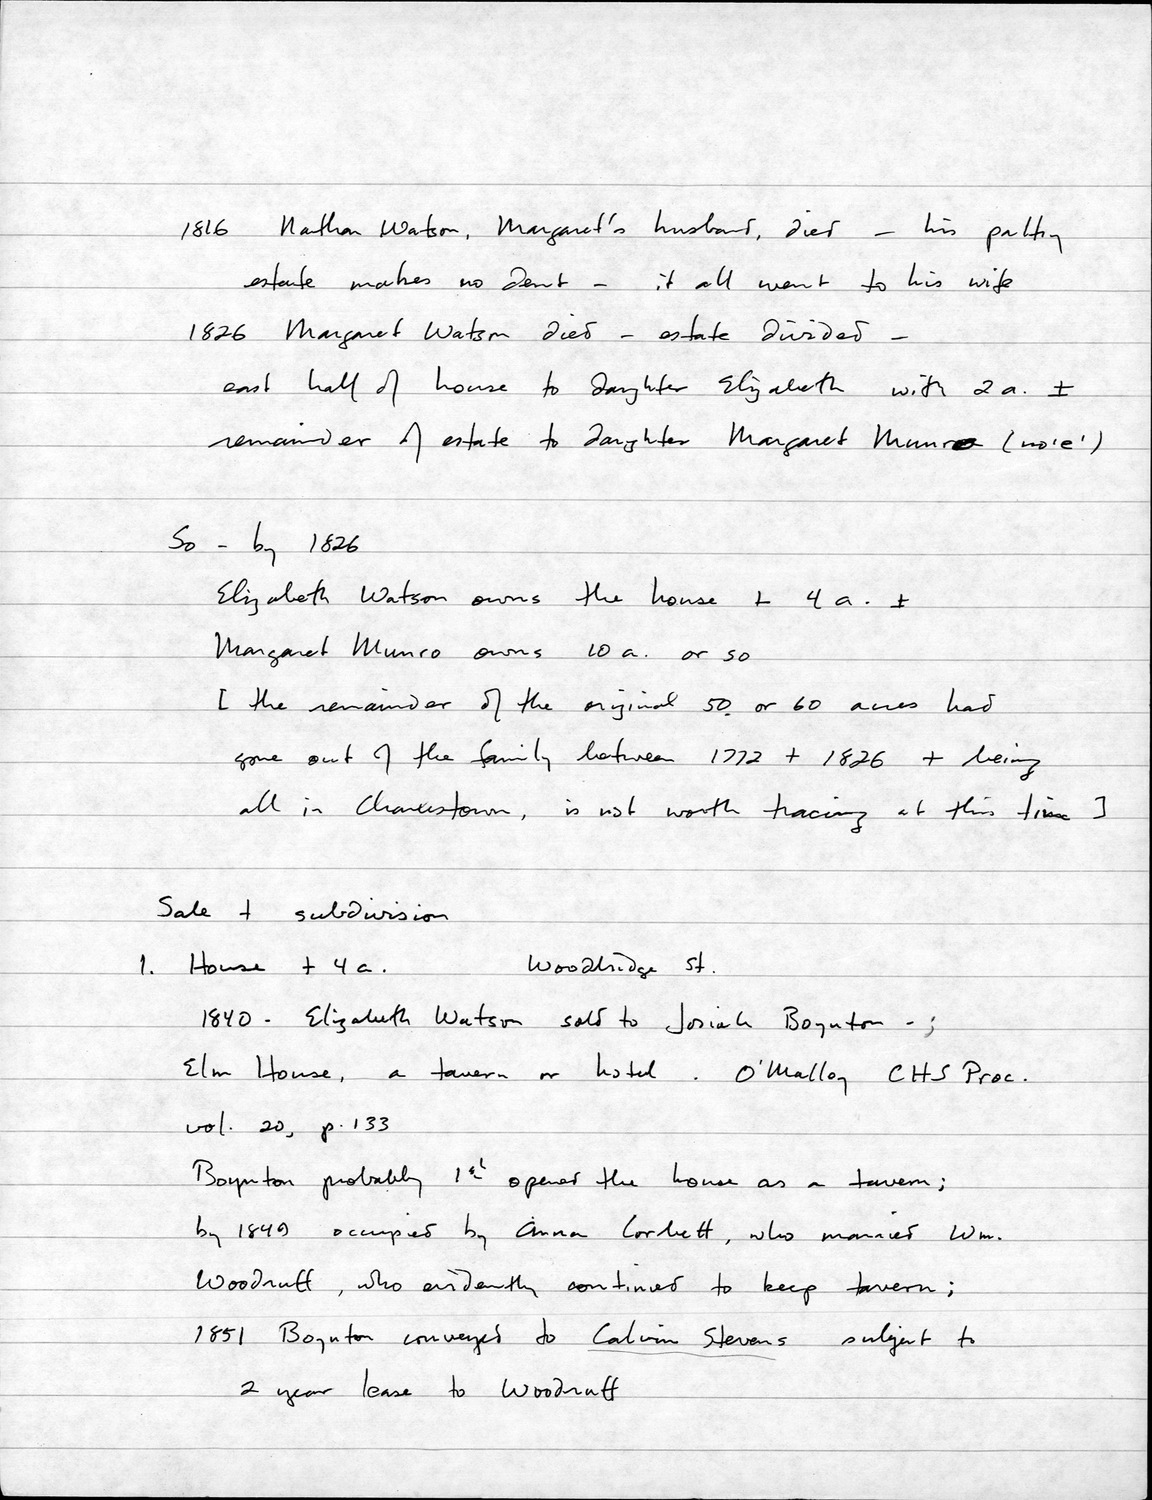 1816 Nathan Watson, Margaret's husband, died – his paltry
estate makes no dent – it all went to his wife
1826 Margaret Watson died – estate divided –
east half of house to daughter Elizabeth with 2 a. ±
remainder of estate to daughter Margaret Munro (no 'e')
So – by 1826
Elizabeth Watson owns the house + 4 a. ±
Margaret Munro owns 10 a. or so
[ the remainder of the original 50 or 60 acres had
gone out of the family between 1772 + 1826 + being
all in Charlestown, is not worth tracing at this time ]
Sale + subdivision
1. House + 4 a. Woodbridge St.
1840 - Elizabeth Watson sold to Josiah Boynton - ;
Elm House, a tavern or hotel. O'Malley CHS Proc.
vol. 20, p. 133
Boynton probably 1st opened the house as a tavern;
by 1849 occupied by Anna Corbett, who married Wm.
Woodruff, who evidently continued to keep tavern;
1851 Boynton conveyed to Calvin Stevens subject to
2 year lease to Woodruff